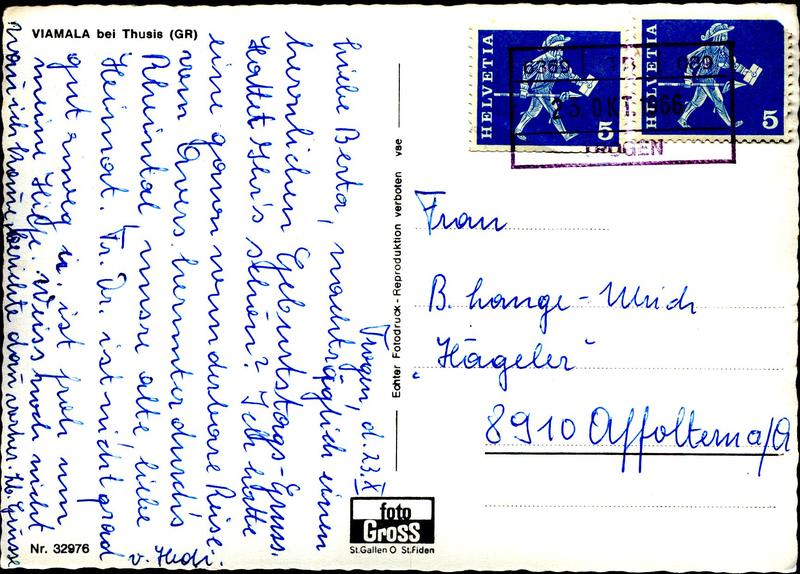 VIAMALA bei Thusis (GR)
Trogen, d. 23. X.
Liebe Berta, nachträglich einen
herrlichen Geburtstags-Gruss.
Hattet Ihr's schön? Ich hatte
eine ganz wunderbare Reise
vom Avers herunter durch's
Rheintal, unsre alte, liebe
Heimat. Fr. Dr. ist nicht grad
gut zweg u. ist froh um
meine Hilfe. Weiss noch nicht
wann ich komme, berichte dann vorher. Hb. Grüsse
v. Hedi.
Nr. 32976
Echter Fotodruck - Reproduktion verboten vse
foto
Gross
St.Gallen O St.Fiden
HELVETIA 5
HELVETIA 5
25. OKT. 1966
TROGEN
Frau
B. Lange-Ulrich
"Hägeler"
8910 Affoltern a/A